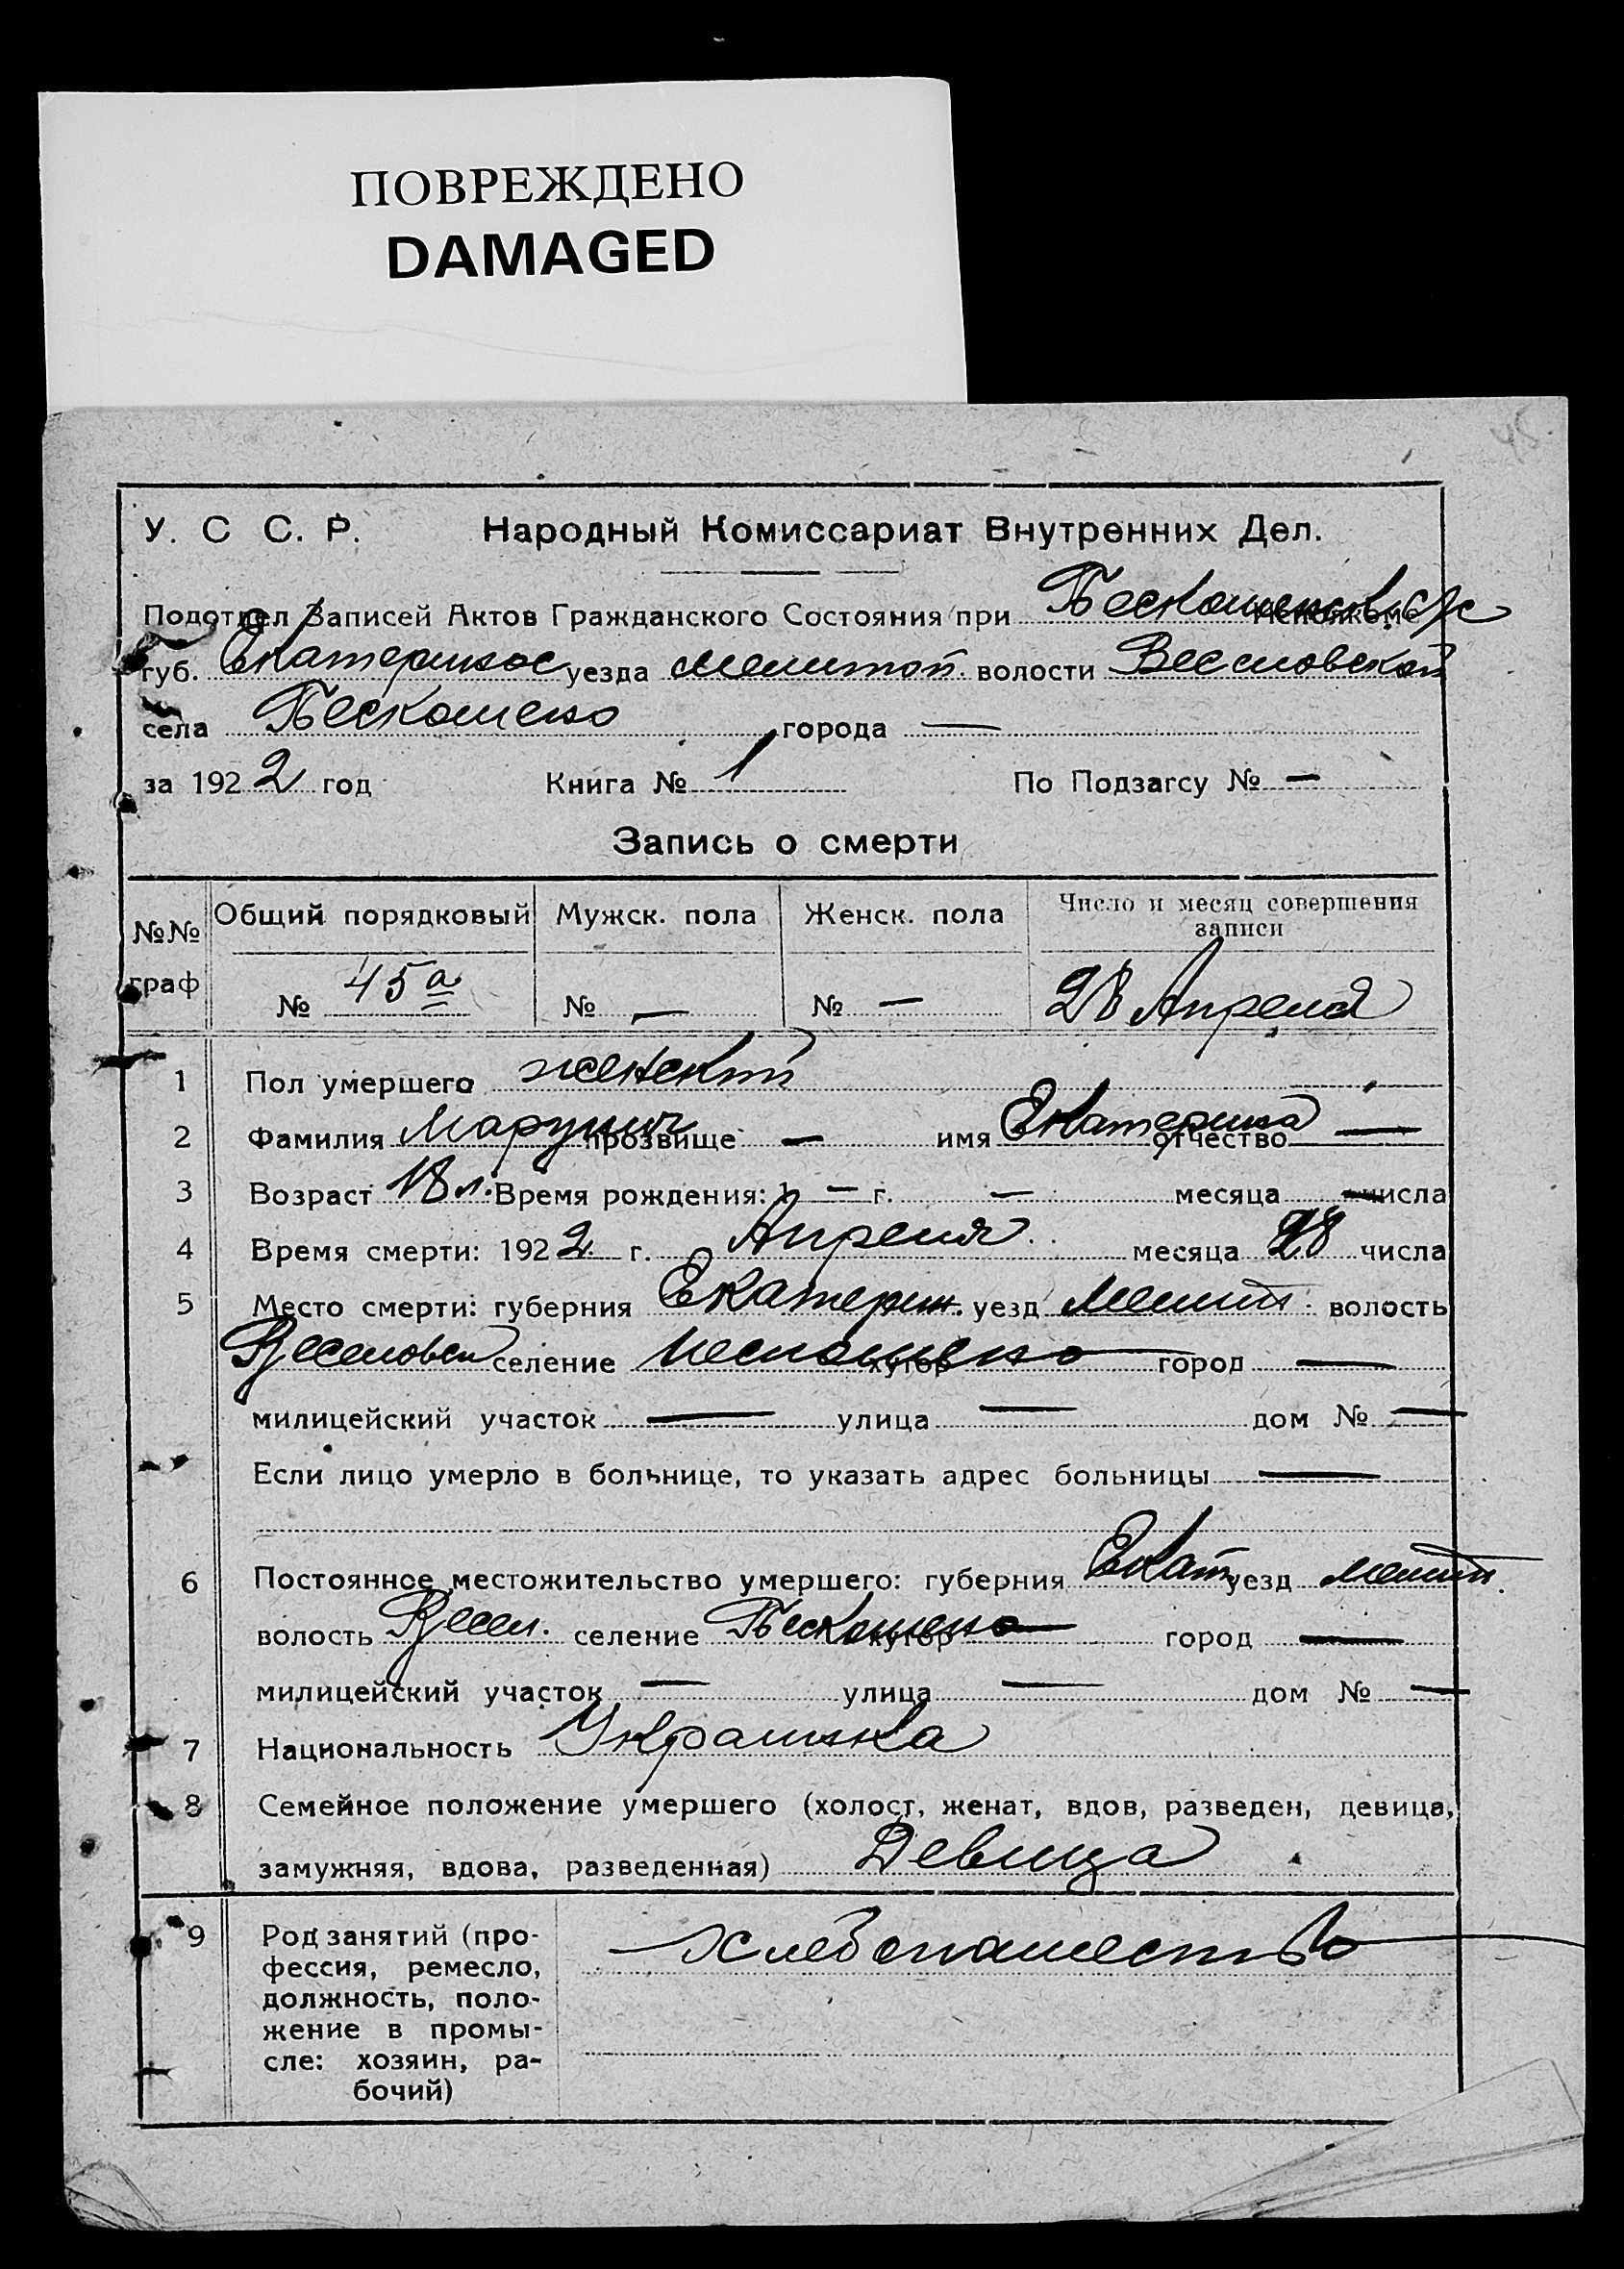 ПОВРЕЖДЕНО
DAMAGED
45.
У. С С. Р. Народный Комиссариат Внутренних Дел.
Подотдел Записей Актов Гражданского Состояния при
губ. Екатеринос уезда Мелитоп. волости Веселовской
села города —
за 1922 год Книга № 1 По Подзагсу № —
Запись о смерти
№№ граф Общий порядковый Мужск. пола Женск. пола Число и месяц совершения записи
№ 45а № — № — 28 Апреля
1 Пол умершего женский
2 Фамилия прозвище — имя Екатерина отчество —
3 Возраст 18 л. Время рождения: 1 — г. — месяца — числа
4 Время смерти: 1922 г. Апреля месяца 28 числа
5 Место смерти: губерния Екатерин. уезд Мелит. волость
Веселовск селение хутор город —
милицейский участок — улица — дом № —
Если лицо умерло в больнице, то указать адрес больницы —
6 Постоянное местожительство умершего: губерния Екат уезд Мелит.
волость Весел. селение хутор город —
милицейский участок — улица — дом № —
7 Национальность Украинка
8 Семейное положение умершего (холост, женат, вдов, разведен, девица,
замужняя, вдова, разведенная) Девица
9 Род занятий (про- хлебопашество
фессия, ремесло,
должность, поло-
жение в промы-
сле: хозяин, ра-
бочий)